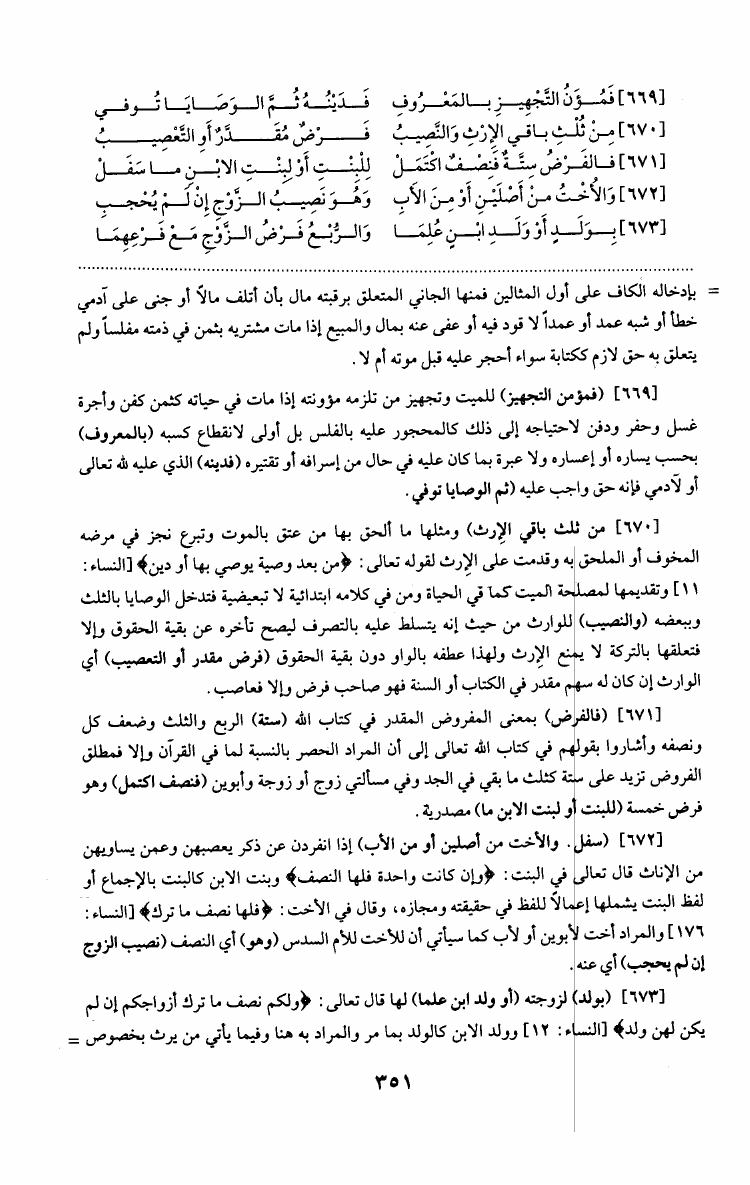 [٦٦٩] فَمُؤَنُ التَّجْهِيزِ بِالمَعْرُوفِ فَدَيْنُهُ ثُمَّ الوَصَايَا تُوفِي
[٦٧٠] مِنْ ثُلْثِ بَاقِي الإِرْثِ وَالنَّصِيبُ فَرْضٌ مُقَدَّرٌ أَوِ التَّعْصِيبُ
[٦٧١] فَالفَرْضُ سِتَّةٌ فَنِصْفٌ اكْتَمَلْ لِلْبِنْتِ أَوْ لِبِنْتِ الابْنِ مَا سَفَلْ
[٦٧٢] وَالأُخْتُ مِنْ أَصْلَيْنِ أَوْ مِنَ الأَبِ وَهُوَ نَصِيبُ الزَّوْجِ إِنْ لَمْ يُحْجَبِ
[٦٧٣] بِوَلَدٍ أَوْ وَلَدِ ابْنٍ عُلِمَا وَالرُّبْعُ فَرْضُ الزَّوْجِ مَعْ فَرْعِهِمَا
= بإدخاله الكاف على أول المثالين فمنها الجاني المتعلق برقبته مال بأن أتلف مالاً أو جنى على آدمي
خطأ أو شبه عمد أو عمداً لا قود فيه أو عفى عنه بمال والمبيع إذا مات مشتريه بثمن في ذمته مفلساً ولم
يتعلق به حق لازم ككتابة سواء أحجر عليه قبل موته أم لا.
[٦٦٩] (فمؤمن التجهيز) للميت وتجهيز من تلزمه مؤونته إذا مات في حياته كثمن كفن وأجرة
غسل وحفر ودفن لاحتياجه إلى ذلك كالمحجور عليه بالفلس بل أولى لانقطاع كسبه (بالمعروف)
بحسب يساره أو إعساره ولا عبرة بما كان عليه في حال من إسرافه أو تقتيره (فدينه) الذي عليه لله تعالى
أو لآدمي فإنه حق واجب عليه (ثم الوصايا توفي.
[٦٧٠] من ثلث باقي الإرث) ومثلها ما ألحق بها من عتق بالموت وتبرع نجز في مرضه
المخوف أو الملحق به وقدمت على الإرث لقوله تعالى: ﴿من بعد وصية يوصي بها أو دين﴾ [النساء:
١١] وتقديمها لمصلحة الميت كما في الحياة ومن في كلامه ابتدائية لا تبعيضية فتدخل الوصايا بالثلث
وببعضه (والنصيب) للوارث من حيث إنه يتسلط عليه بالتصرف ليصح تأخره عن بقية الحقوق وإلا
فتعلقها بالتركة لا يمنع الإرث ولهذا عطفه بالواو دون بقية الحقوق (فرض مقدر أو التعصيب) أي
الوارث إن كان له سهم مقدر في الكتاب أو السنة فهو صاحب فرض وإلا فعاصب.
[٦٧١] (فالفرض) بمعنى المفروض المقدر في كتاب الله (ستة) الربع والثلث وضعف كل
ونصفه وأشاروا بقولهم في كتاب الله تعالى إلى أن المراد الحصر بالنسبة لما في القرآن وإلا فمطلق
الفروض تزيد على ستة كثلث ما بقي في الجد وفي مسألتي زوج أو زوجة وأبوين (فنصف اكتمل) وهو
فرض خمسة (للبنت أو لبنت الابن ما) مصدرية.
[٦٧٢] (سفل. والأخت من أصلين أو من الأب) إذا انفردن عن ذكر يعصبهن وعمن يساويهن
من الإناث قال تعالى في البنت: ﴿وإن كانت واحدة فلها النصف﴾ وبنت الابن كالبنت بالإجماع أو
لفظ البنت يشملها إعمالاً للفظ في حقيقته ومجازه، وقال في الأخت: ﴿فلها نصف ما ترك﴾ [النساء:
١٧٦] والمراد أخت لأبوين أو لأب كما سيأتي أن للأخت للأم السدس (وهو) أي النصف (نصيب الزوج
إن لم يحجب) أي عنه.
[٦٧٣] (بولد) لزوجته (أو ولد ابن علما) لها قال تعالى: ﴿ولكم نصف ما ترك أزواجكم إن لم
يكن لهن ولد﴾ [النساء: ١٢] وولد الابن كالولد بما مر والمراد به هنا وفيما يأتي من يرث بخصوص =
٣٥١